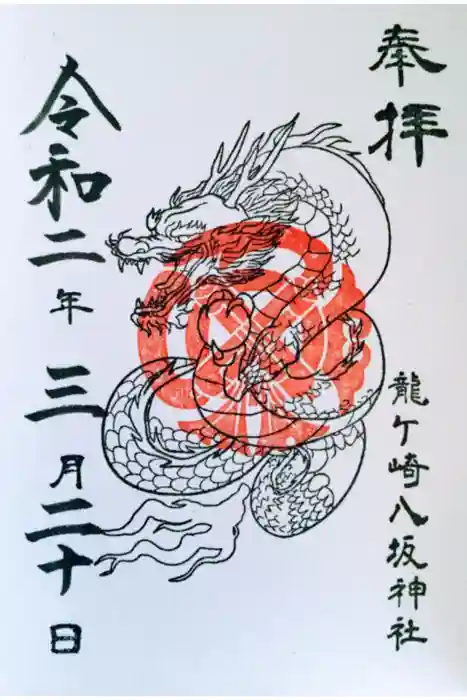 奉拝
龍ケ崎八坂神社
令和二年三月二十日